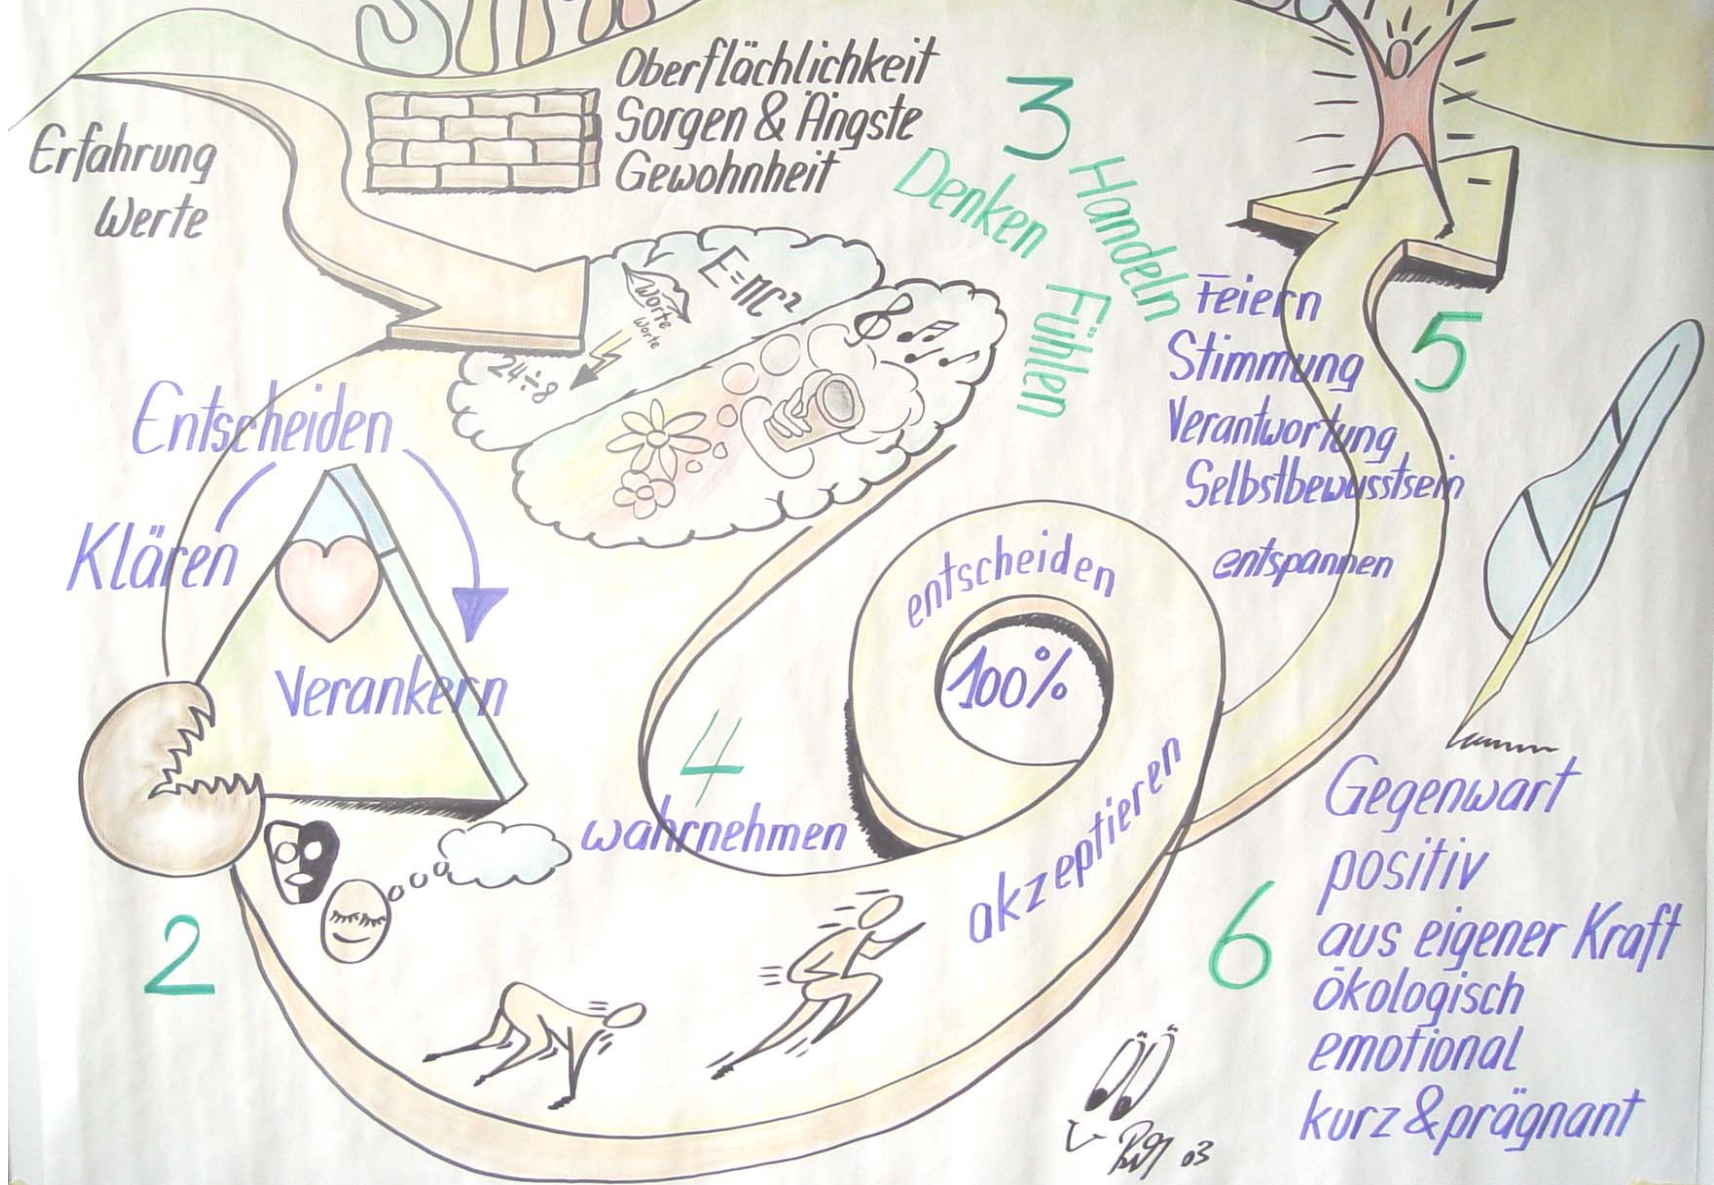 Oberflächlichkeit
Sorgen & Ängste
Gewohnheit
Erfahrung
Werte
3
Denken
Handeln
Fühlen
E=mc²
Worte
Worte
24÷8
Entscheiden
Klären
Verankern
Feiern
Stimmung
Verantwortung
Selbstbewusstsein
entspannen
5
entscheiden
100%
akzeptieren
4
wahrnehmen
2
6
Gegenwart
positiv
aus eigener Kraft
ökologisch
emotional
kurz & prägnant
03